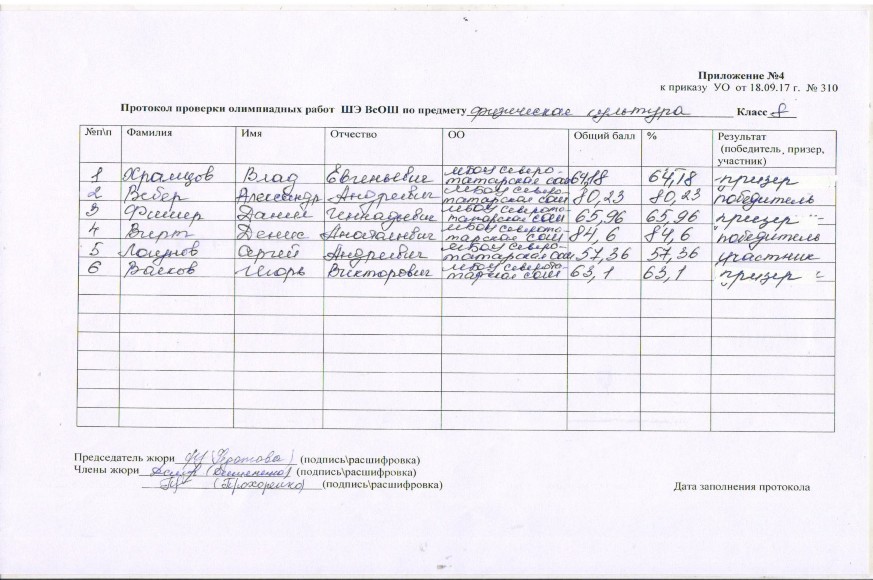 Приложение №4
к приказу УО от 18.09.17 г. № 310
Протокол проверки олимпиадных работ ШЭ ВсОШ по предмету физическая культура Класс 8
№п\п Фамилия Имя Отчество ОО Общий балл % Результат (победитель, призер, участник)
1 Храмцов Влад Евгеньевич МБОУ Северо-татарская сош 64,18 64,18 призер
2 Вебер Александр Андреевич МБОУ Северо-татарская сош 80,23 80,23 победитель
3 Фишер Данил Геннадьевич МБОУ Северо-татарская сош 65,96 65,96 призер
4 Вирт Денис Анатольевич МБОУ Северота-тарская сош 84,6 84,6 победитель
5 Сергей Андреевич МБОУ Северо-татарская сош 57,36 57,36 участник
6 Игорь Викторович МБОУ Северота-тарская сош 63,1 63,1 призер
Председатель жюри (Федотова) (подпись\расшифровка)
Члены жюри (подпись\расшифровка)
(Прохоренко) (подпись\расшифровка)
Дата заполнения протокола